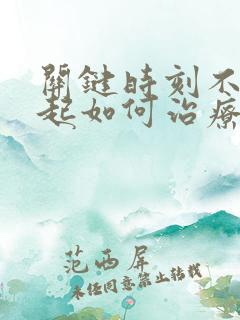 關鍵時刻不
起如何治療
范西屏
未任同意禁止轉載